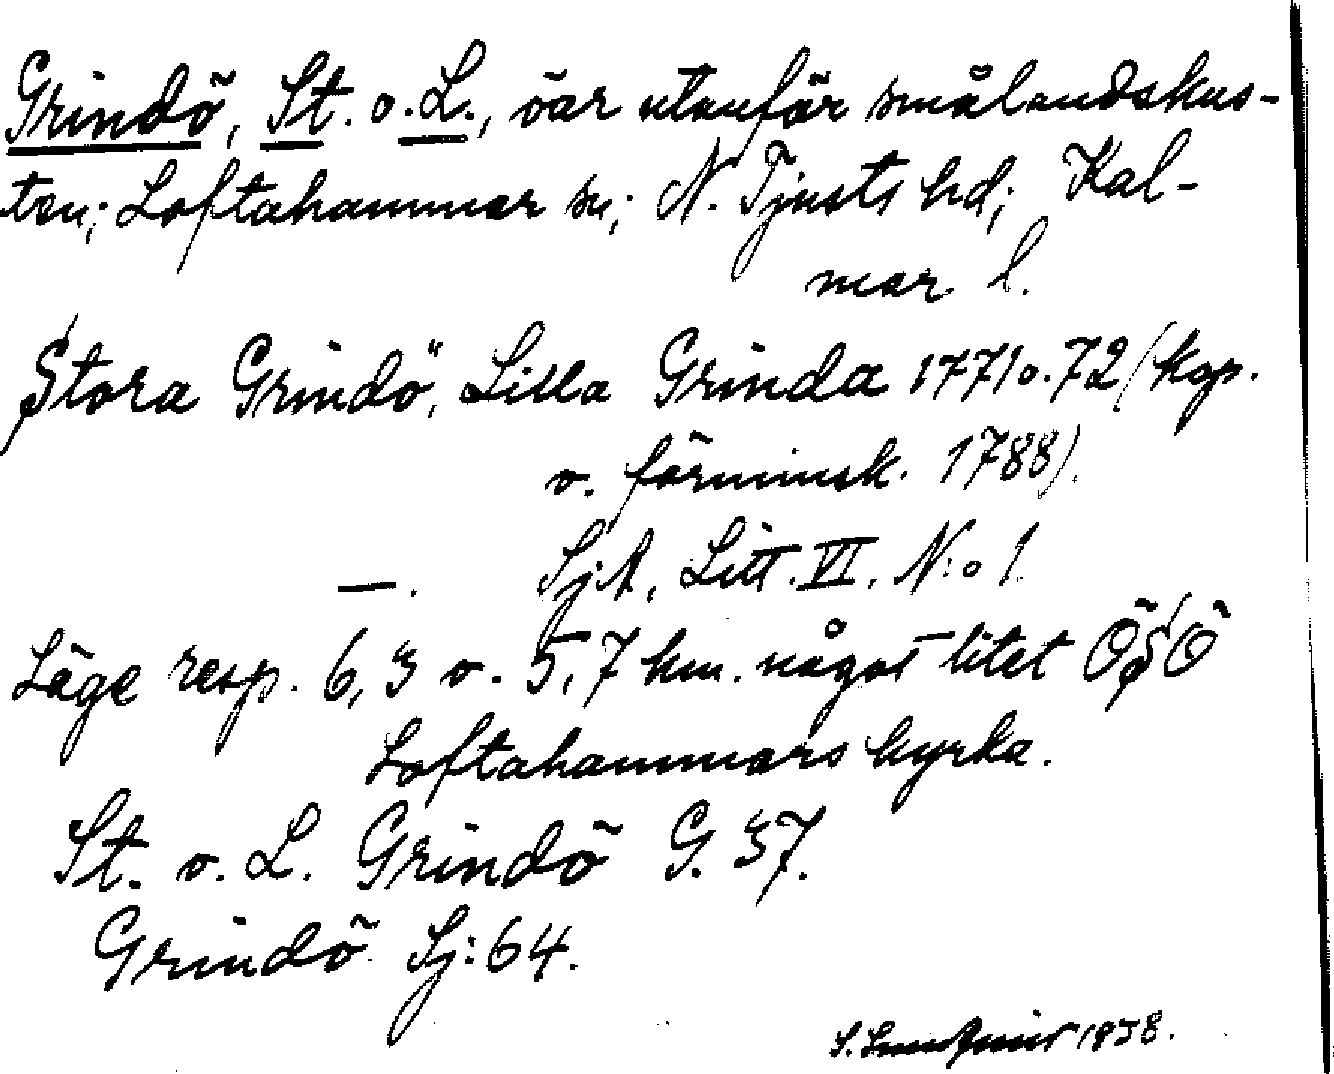 Grindö, St. o. L., öar utanför smålandskus-
ten; Loftahammar sn; N. Tjusts hd; Kal-
mar l.
Stora Grindö, Lilla Grinda 1771 o. 72 (kop.
o. förminsk. 1788).
—. SjA, Litt. VI. N:o 1.
Läge resp. 6,3 o. 5,7 km. något litet ÖSÖ
Loftahammars kyrka.
St. o. L. Grindö G. 37.
Grindö Sj: 64.
S. 1938.